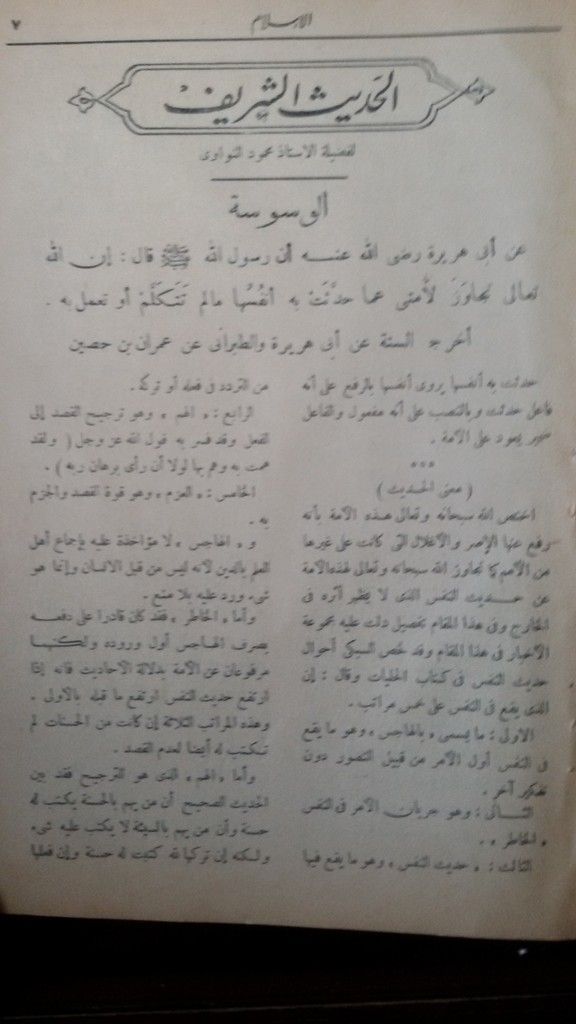 الإسلام
٧
الحديث الشريف
لفضيلة الاستاذ محمود النواوى
الوسوسة
عن أبى هريرة رضى الله عنه أن رسول الله ﷺ قال : إن الله
تعالى تجاوَزَ لأُمتى عما حدثَتْ به أنفُسُها مالم تَتَكلَّمْ أو تعمل به .
أخرجه الستة عن أبى هريرة والطبرانى عن عمران بن حصين
حدثت به أنفسها يروى أنفسها بالرفع على أنه
فاعل حدثت وبالنصب على أنه مفعول والفاعل
ضمير يعود على الأمة .
***
( معنى الحديث )
اختص الله سبحانه وتعالى هذه الأمة بأنه
رفع عنها الإصر والأغلال التى كانت على غيرها
من الأمم كما تجاوز الله سبحانه وتعالى لهذه الأمة
عن حديث النفس الذى لا يظهر أثره فى
الخارج وفى هذا المقام تفصيل دلت عليه مجموعة
الأخبار فى هذا المقام وقد لخص السبكى أحوال
حديث النفس فى كتاب الحلبيات وقال : إن
الذى يقع فى النفس على خمس مراتب .
الاولى : ما يسمى « بالهاجس » وهو ما يقع
فى النفس أول الأمر من قبيل التصور دون
تفكير آخر .
الثانى : وهو جريان الأمر فى النفس
« الخاطر » .
الثالث : « حديث النفس » وهو ما يقع فيها
من التردد فى فعله أو تركه .
الرابع : « الهم » وهو ترجيح القصد إلى
الفعل وقد فسر به قول الله عز وجل ( ولقد
همت به وهم بها لولا أن رأى برهان ربه ) .
الخامس : « العزم » وهو قوة القصد والجزم
به .
و « الهاجس » لا مؤاخذة عليه بإجماع أهل
العلم بالدين لأنه ليس من قبل الانسان وإنما هو
شىء ورد عليه بلا صنع .
وأما « الخاطر » فقد كان قادرا على دفعه
بصرف الهاجس أول وروده ولكنهما
مرفوعان عن الأمة بدلالة الأحاديث فانه إذا
ارتفع حديث النفس ارتفع ما قبله بالأولى .
وهذه المراتب الثلاثة إن كانت من الحسنات لم
تكتب له أيضا لعدم القصد .
وأما « الهم » الذى هو الترجيح فقد بين
الحديث الصحيح أن من يهم بالحسنة يكتب له
حسنة وأن من يهم بالسيئة لا يكتب عليه شىء
ولكنه إن تركها لله كتبت له حسنة وإن فعلها